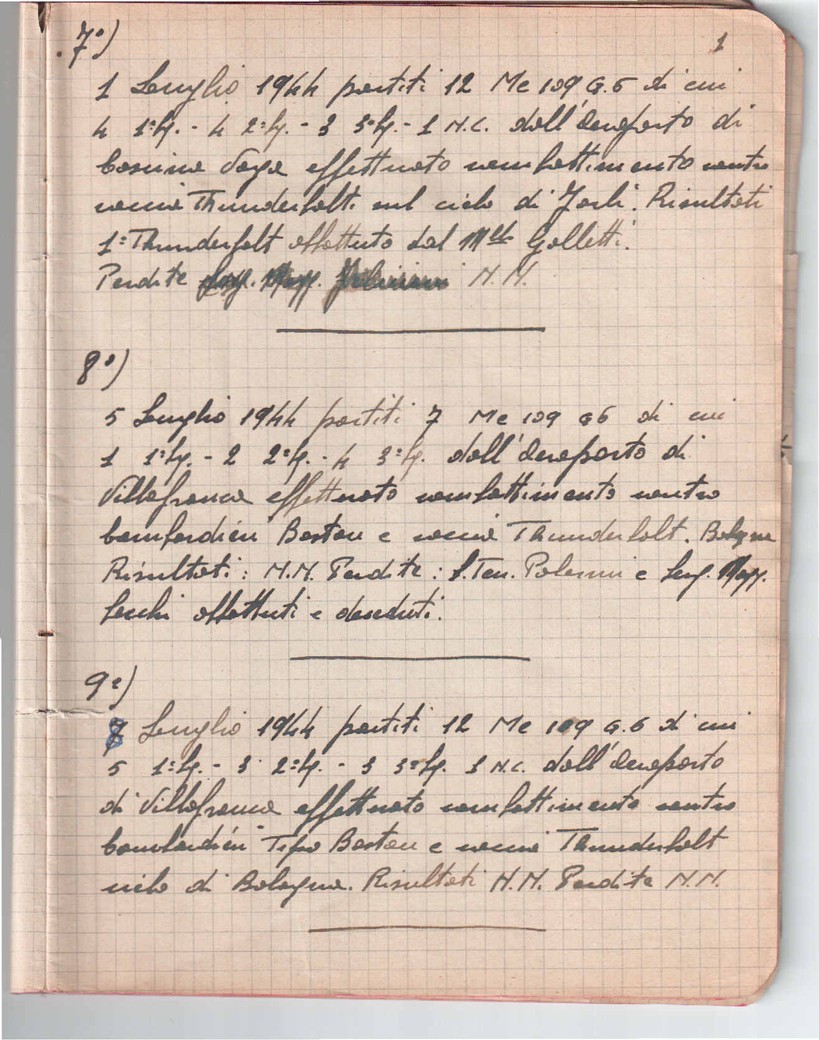 1
7°)
1 Luglio 1944 partiti 12 Me 109 G.6 di cui
4 1ª Sq. - 4 2ª Sq. - 3 3ª Sq. - 1 N.C. dall'Aeroporto di
Cascina Vaga effettuato combattimento contro
caccia Thunderbolt sul cielo di Forlì. Risultati
1: Thunderbolt abbattuto dal M.llo Galletti.
Perdite N.N.
8°)
5 Luglio 1944 partiti 7 Me 109 G6 di cui
1 1ª Sq. - 2 2ª Sq. - 4 3ª Sq. dall'Aeroporto di
Villafranca effettuato combattimento contro
bombardieri Boston e caccia Thunderbolt. Bologna
Risultati: N.N. Perdite: S.Ten. e Serg. Magg.
Cecchi abbattuti e deceduti.
9°)
Luglio 1944 partiti 12 Me 109 G.6 di cui
5 1ª Sq. - 3 2ª Sq. - 3 3ª Sq. 1 N.C. dall'Aeroporto
di Villafranca effettuato combattimento contro
bombardieri Tipo Boston e caccia Thunderbolt
cielo di Bologna. Risultati N.N. Perdite N.N.